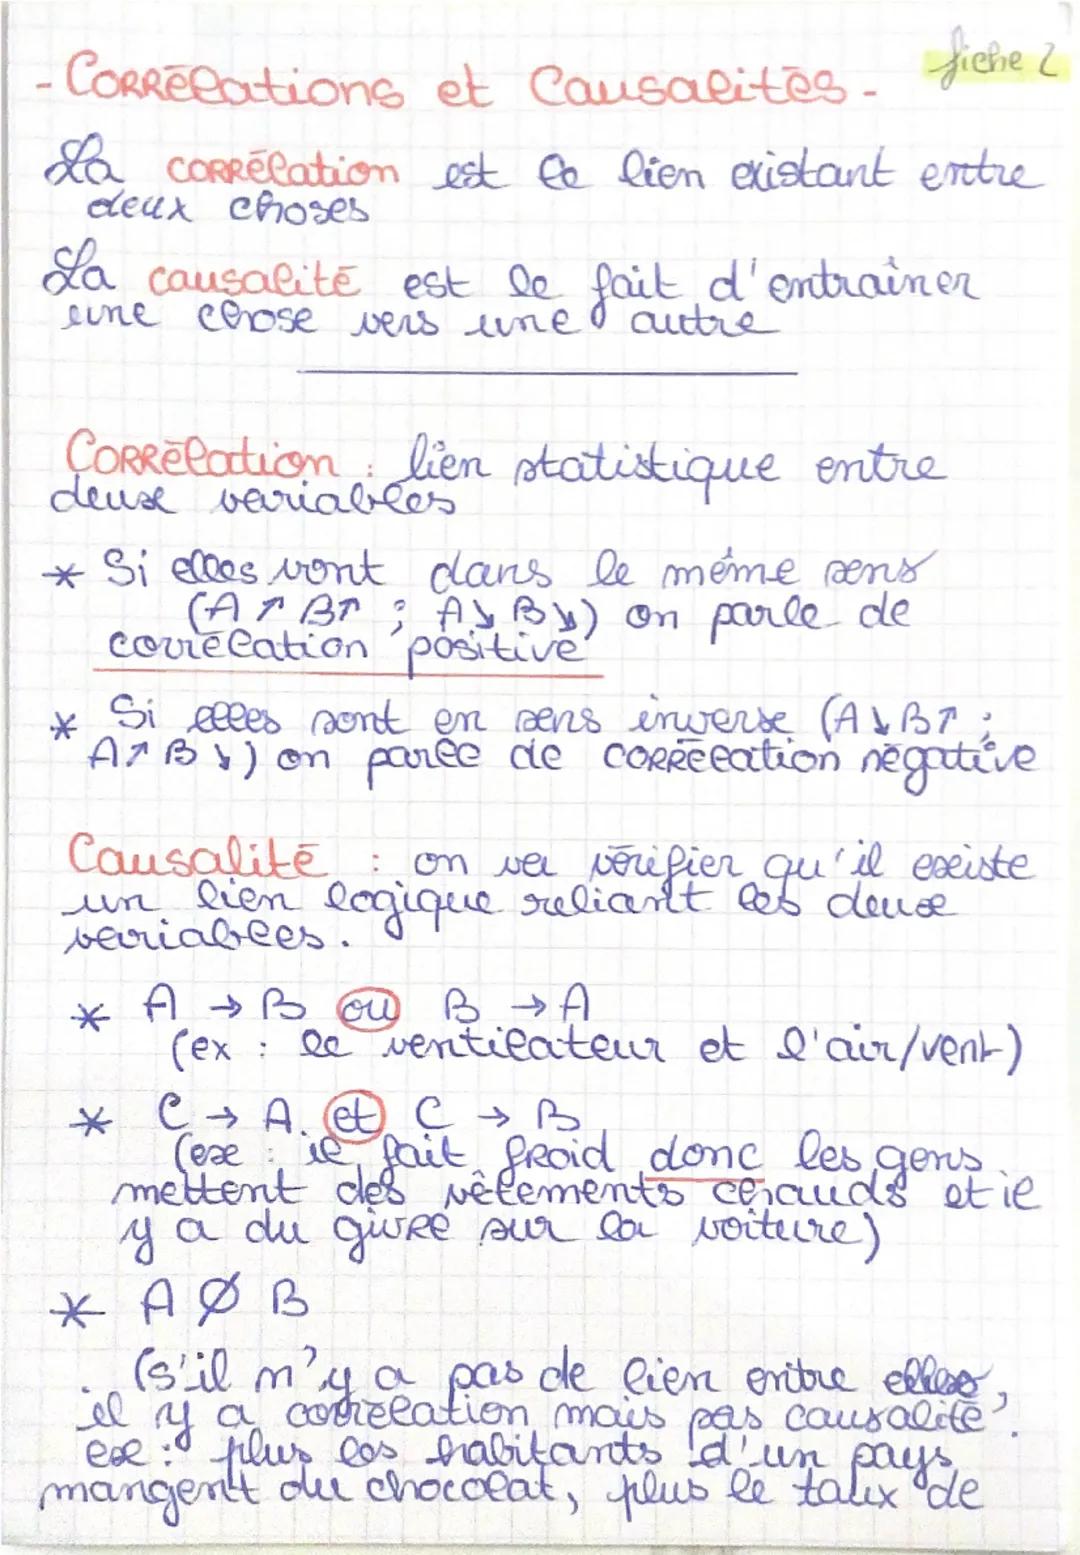 fiche 2
- Corrélations et Causalités -
La corrélation est le lien existant entre
deux choses
La causalité est le fait d'entraîner
une chose vers une autre
Corrélation : lien statistique entre
deux variables
* Si elles vont dans le même sens
(A ↗ B↗ ; A↘ B↘) on parle de
corrélation positive
* Si elles sont en sens inverse (A↘B↗ ;
A↗ B↘) on parle de corrélation négative
Causalité : on va vérifier qu'il existe
un lien logique reliant les deux
variables.
* A → B ou B → A
(ex : le ventilateur et l'air/vent)
* C → A et C → B
(ex : il fait froid donc les gens
mettent des vêtements chauds et il
y a du givre sur la voiture)
* A Ø B
(s'il n'y a pas de lien entre elles,
il y a corrélation mais pas causalité).
ex : plus les habitants d'un pays
mangent du chocolat, plus le taux de